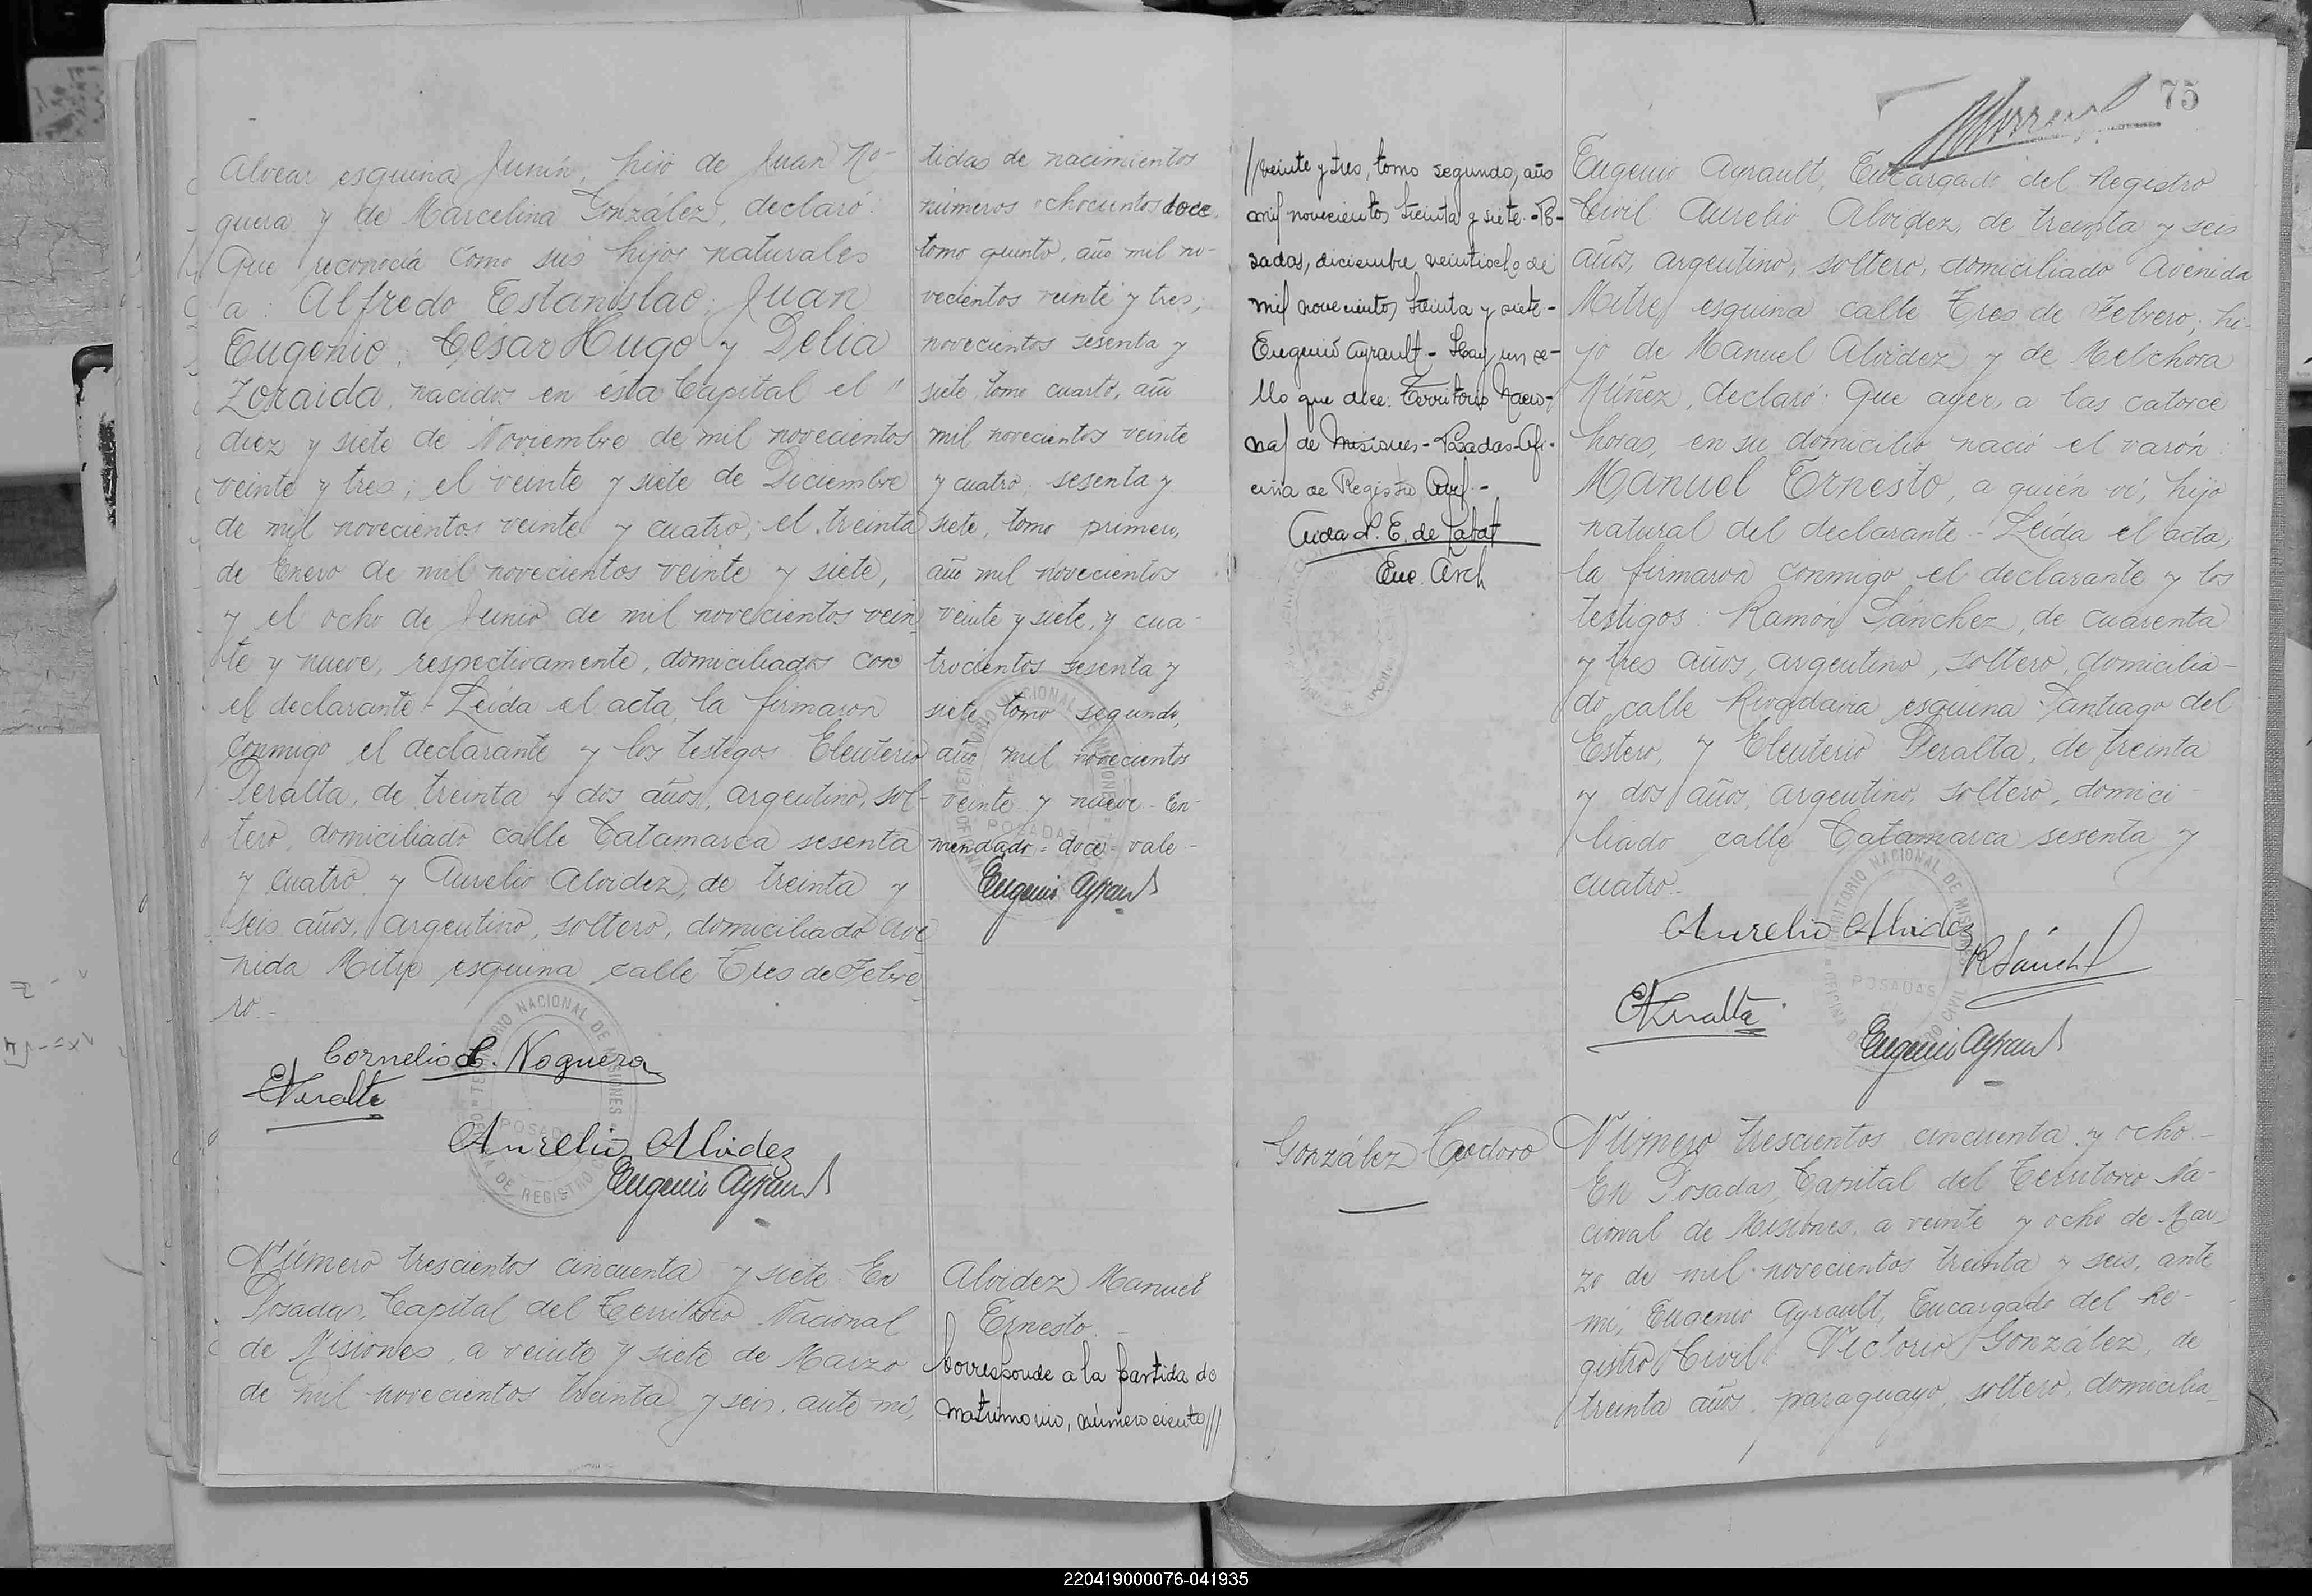 Alvear esquina Junín, hijo de Juan No-
guera y de Marcelina González, declaró:
Que reconocía como sus hijos naturales
a: Alfredo Estanislao, Juan
Eugenio, César Hugo y Delia
Zoraida, nacidos en ésta Capital el "
diez y siete de Noviembre de mil novecientos
veinte y tres; el veinte y siete de Diciembre
de mil novecientos veinte y cuatro; el treinta
de Enero de mil novecientos veinte y siete,
y el ocho de Junio de mil novecientos vein-
te y nueve, respectivamente, domiciliados con
el declarante.- Leída el acta, la firmaron
conmigo el declarante y los testigos: Eleuterio
Peralta, de treinta y dos años, argentino, sol-
tero, domiciliado calle Catamarca sesenta
y cuatro, y Aurelio Alvidez, de treinta y
seis años, argentino, soltero, domiciliado Ave
nida Mitre esquina calle Tres de Febre-
ro.-
Cornelio L. Noguera
E Peralta
Aurelio Alvidez
Eugenio Ayrault
TERRITORIO NACIONAL DE MISIONES
POSADAS
OFICINA DE REGISTRO CIVIL
Número trescientos cincuenta y siete. En
Posadas, Capital del Territorio Nacional
de Misiones, a veinte y siete de Marzo
de mil novecientos treinta y seis, ante mí,
tidas de nacimientos
números ochocientos doce,
tomo quinto, año mil no-
vecientos veinte y tres;
novecientos sesenta y
siete, tomo cuarto, año
mil novecientos veinte
y cuatro; sesenta y
siete, tomo primero,
año mil novecientos
veinte y siete, y cua-
trocientos sesenta y
siete, tomo segundo,
año mil novecientos
veinte y nueve.- En-
mendado: doce= vale-
Eugenio Ayrault
TERRITORIO NACIONAL DE MISIONES
POSADAS
Alvidez Manuel
Ernesto.-
Corresponde a la partida de
matrimonio, número ciento///
//veinte y tres, tomo segundo, año
mil novecientos treinta y siete.-Po-
sadas, diciembre veintiocho de
mil novecientos treinta y siete-
Eugenio Ayrault - Hay un se-
llo que dice: Territorio Nacio-
nal de Misiones - Posadas - Ofi-
cina de Registro Civil.-
Enc. Arch
González Teodoro
75
Eugenio Ayrault, Encargado del Registro
Civil: Aurelio Alvidez, de treinta y seis
años, argentino, soltero, domiciliado Avenida
Mitre esquina calle Tres de Febrero; hi-
jo de Manuel Alvidez y de Melchora
Núñez, declaró: Que ayer, a las catorce
horas, en su domicilio nació el varón:
Manuel Ernesto, a quién ví, hijo
natural del declarante.- Leída el acta,
la firmaron conmigo el declarante y los
testigos: Ramón Sánchez, de cuarenta
y tres años, argentino, soltero, domicilia-
do calle Rivadavia esquina Santiago del
Estero, y Eleuterio Peralta, de treinta
y dos años, argentino, soltero, domici-
liado calle Catamarca sesenta y
cuatro.-
Aurelio Alvidez
R Sánchez
E Peralta
Eugenio Ayrault
TERRITORIO NACIONAL DE MISIONES
POSADAS
OFICINA DE REGISTRO CIVIL
Número trescientos cincuenta y ocho.-
En Posadas, Capital del Territorio Na-
cional de Misiones, a veinte y ocho de Mar-
zo de mil novecientos treinta y seis, ante
mí, Eugenio Ayrault, Encargado del Re-
gistro Civil: Victorio González, de
treinta años, paraguayo, soltero, domicilia-
220419000076-041935